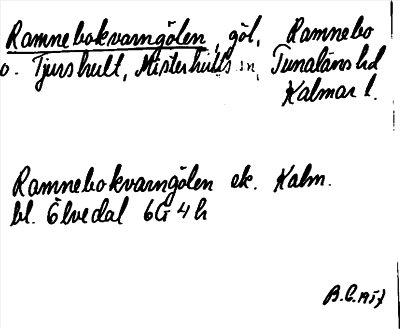 Ramnebokvarngölen, göl, Ramnebo
o. Tjurshult, Misterhults sn, Tunaläns hd
Kalmar l.
Ramnebokvarngölen ek. Kalm.
bl. Ölvedal 6G 4h
B.C.